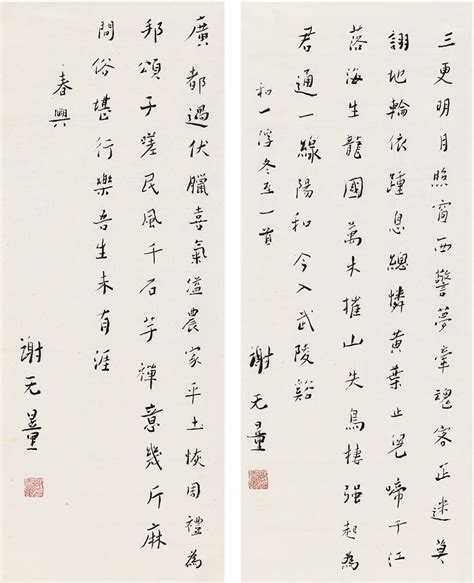 三更明月照窗西警夢牽魂客正迷莫
詡地輪依踵息總憐黃葉止兒啼千江
落海生龍國萬木摧山失鳥棲强起為
君通一線陽和今入武陵谿
和一浮冬至一首
謝无量
廣都過伏臘喜氣溢農家平土恢周禮為
邦頌子嗟民風千石芋禪意幾斤麻
問俗堪行樂吾生未有涯
春興
謝无量